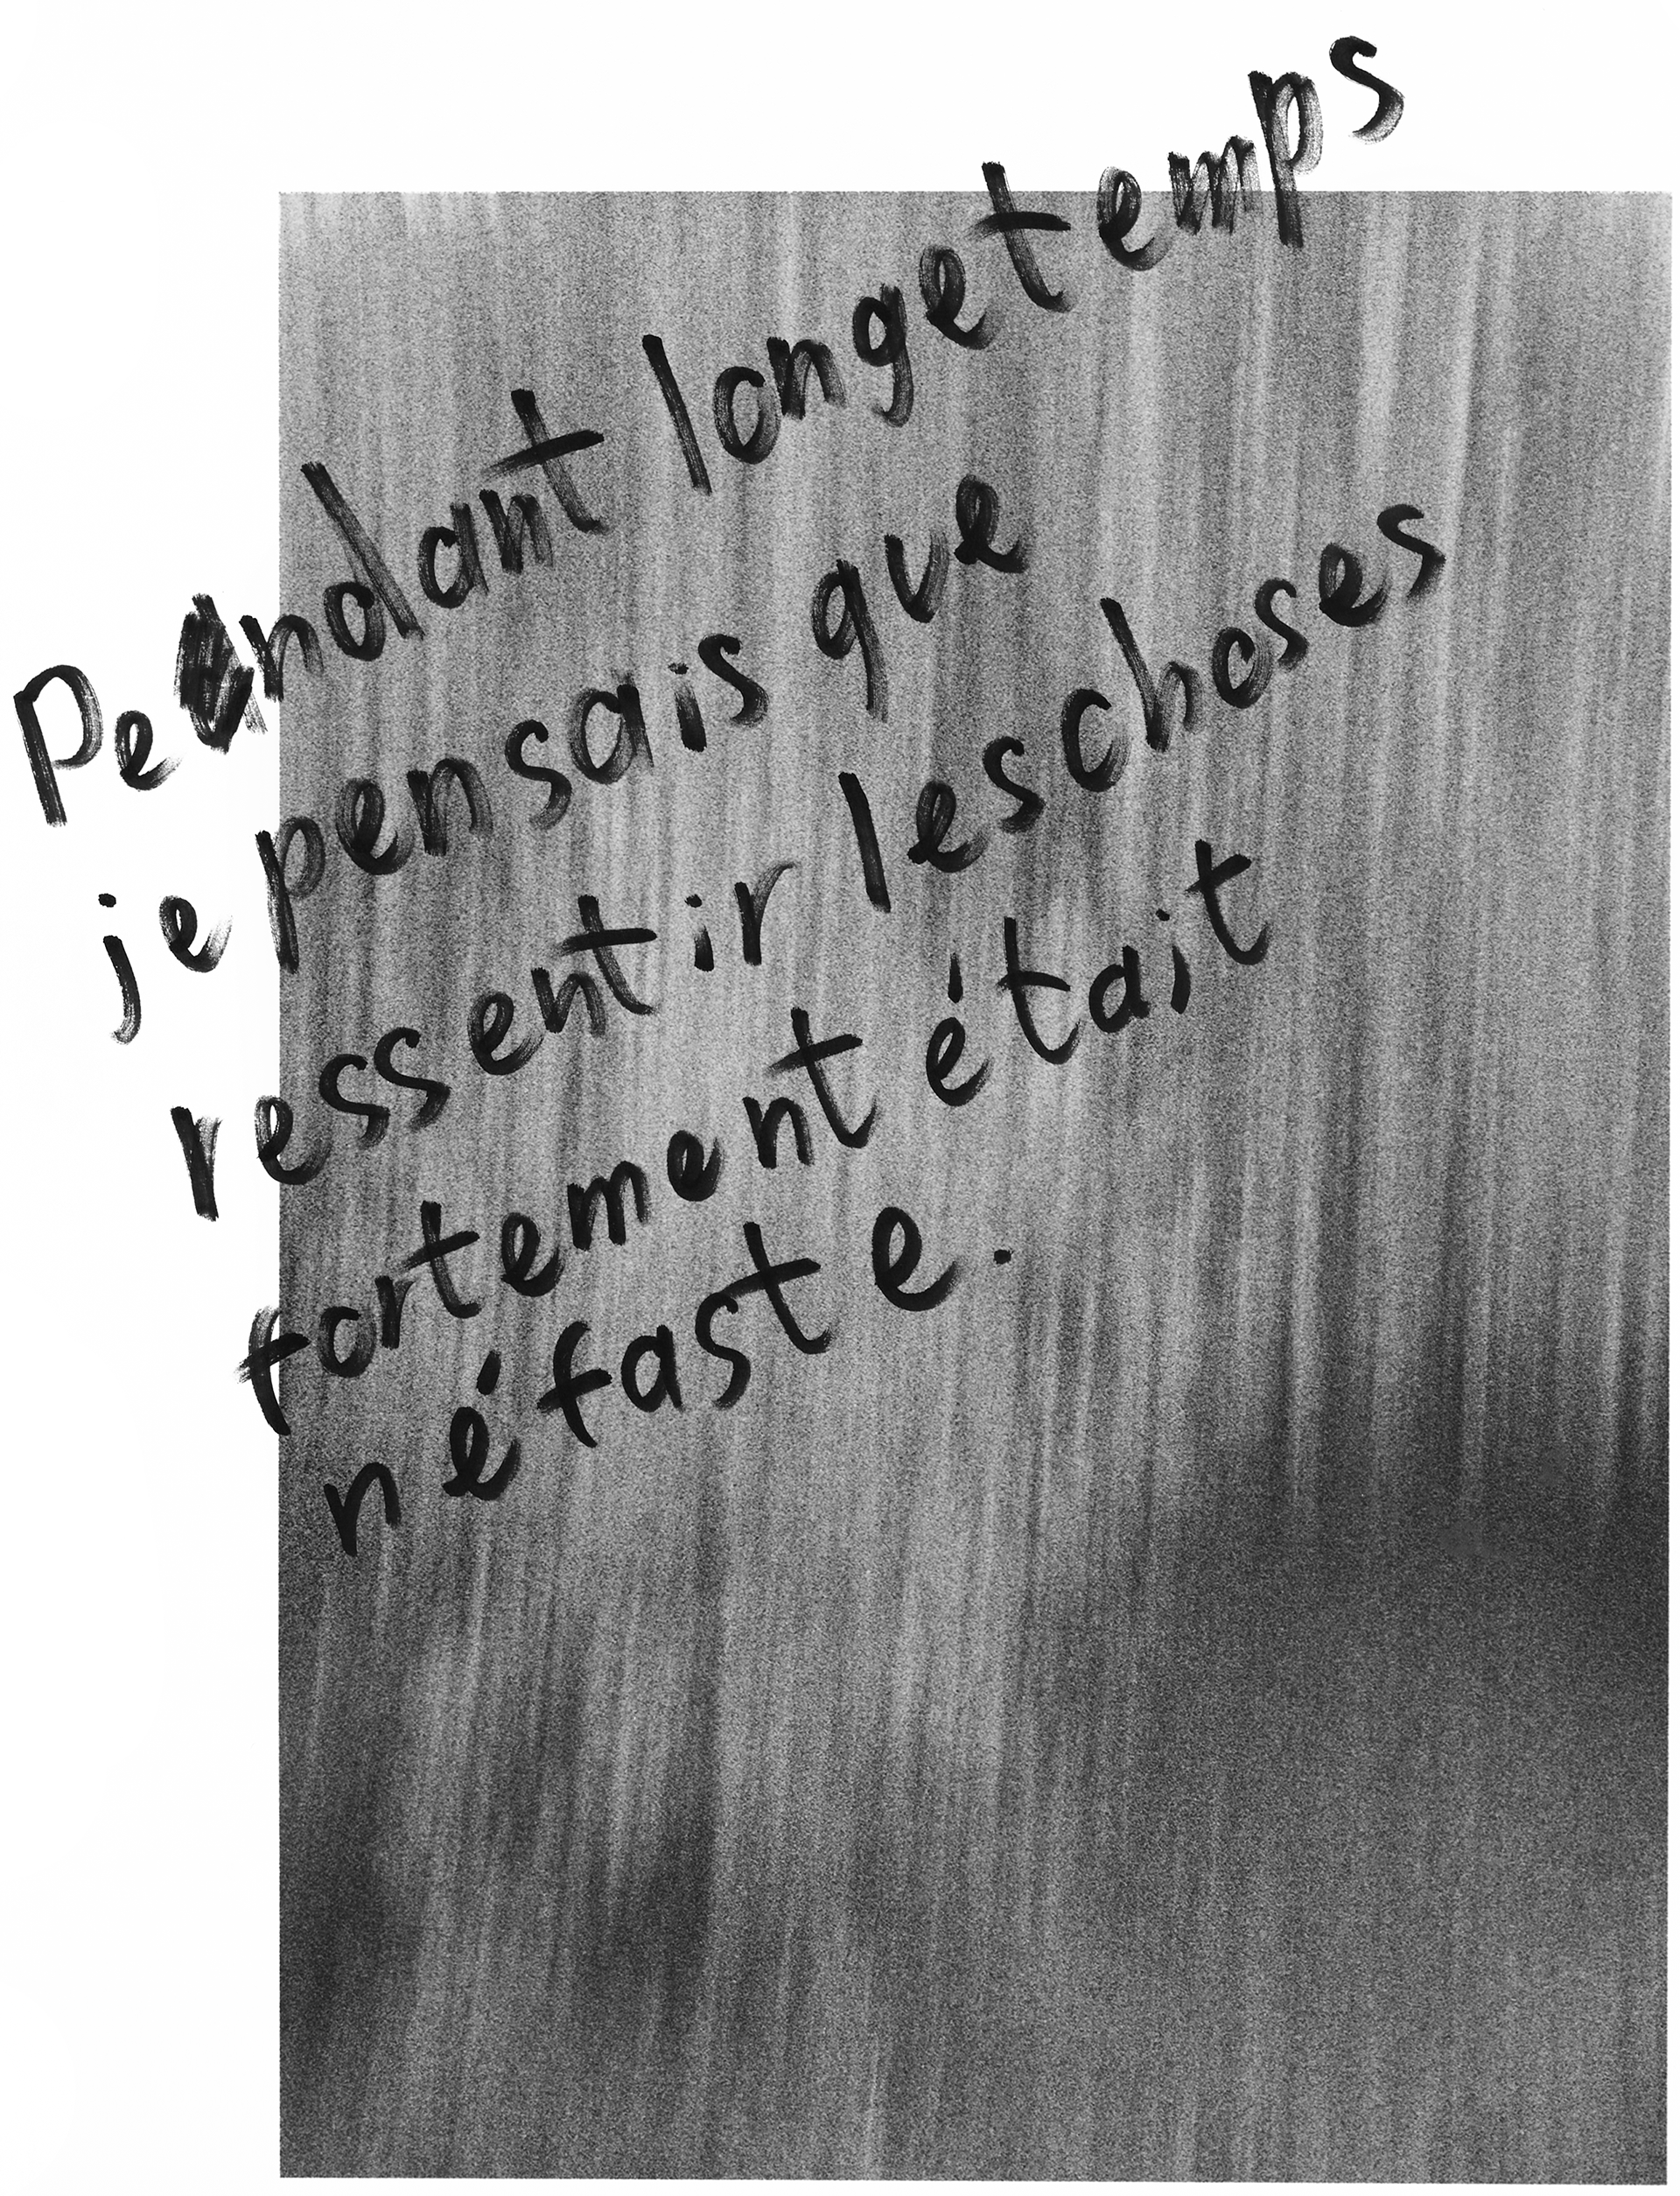 Pendant longetemps
je pensais que
ressentir les choses
fortement était
néfaste.